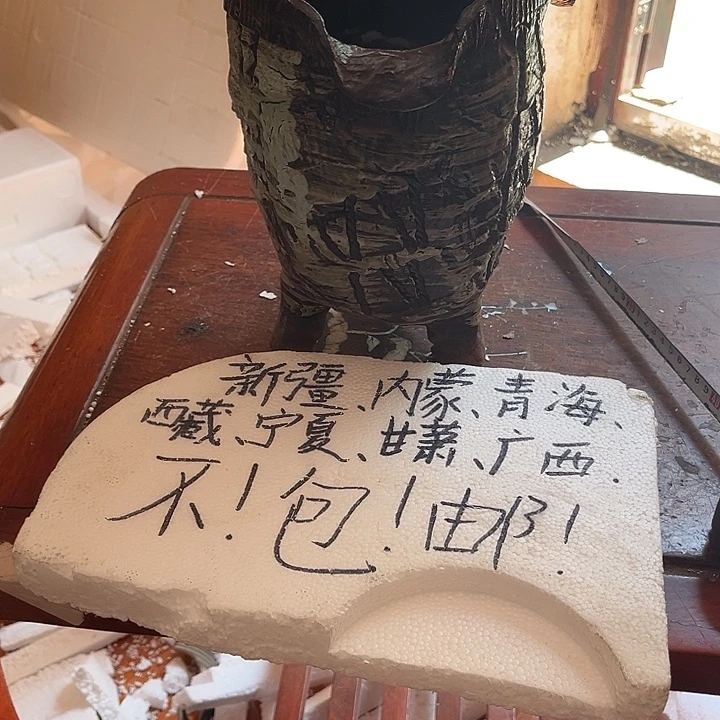 新疆、内蒙、青海、
西藏、宁夏、甘肃、广西.
不！包！由阝！